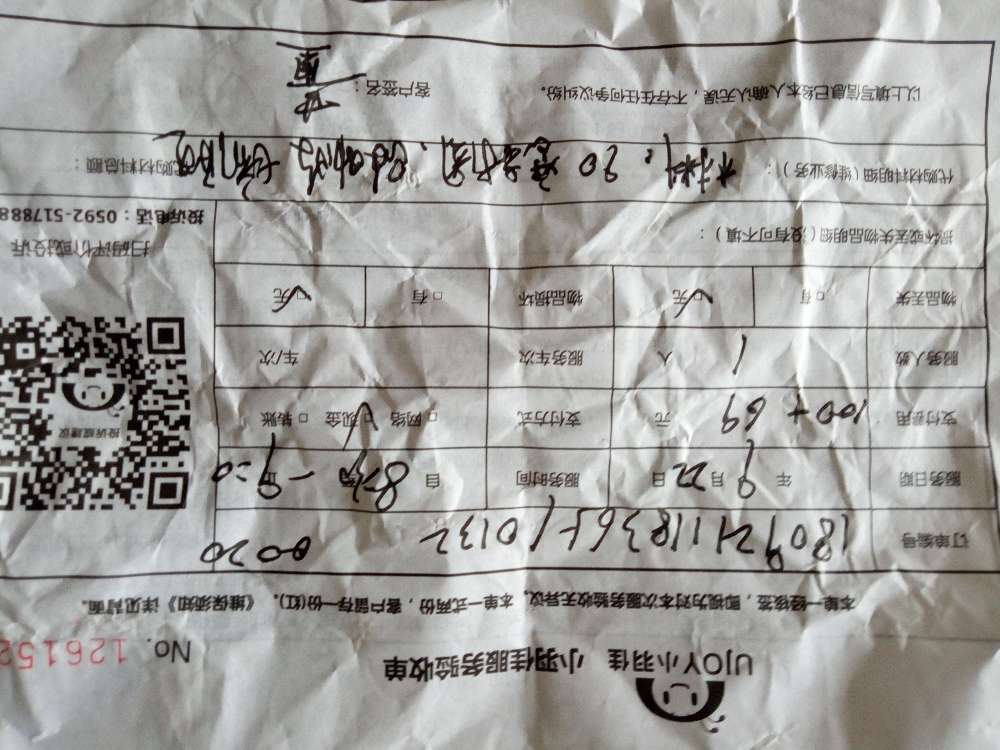 UJOY小羽佳 小羽佳服务验收单
No. 126152
本单一经核签，即视为对本次服务验收无异议。本单一式两份，客户留存一份(红)。《维保须知》详见背面。
订单编号
服务日期 年 9 月 22 日 服务时间 自
支付费用 100+69 元 支付方式 □网络 □现金 □转账
服务人数 1 人 服务车次 车/次
物品丢失 □有 □无 物品损坏 □有 □无
投诉或建议
扫码评价或投诉
投诉电话：0592-517888
损坏或丢失物品明细（没有可不填）：
代购材料明细（维修业务）： 材料：20 代购材料总额：
以上填写信息已经本人确认无误，不存在任何争议纠纷。 客户签名：